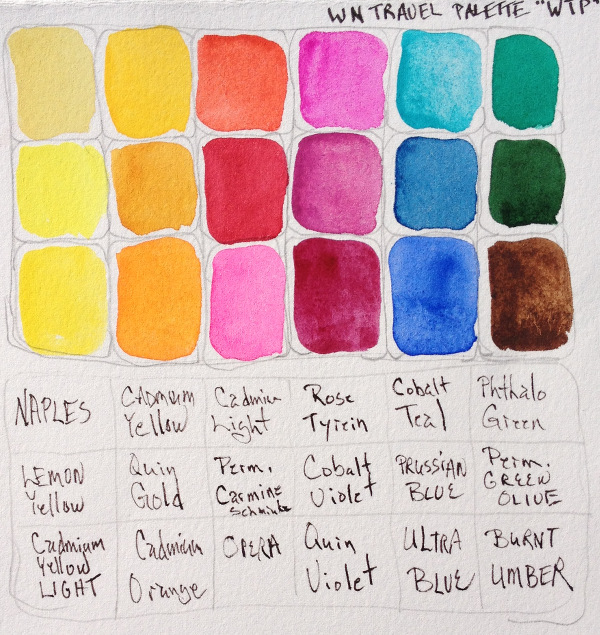 WN TRAVEL PALETTE "WTP"
NAPLES
CADMIUM
Yellow
Cadmium
Light
Rose
Tyrien
Cobalt
Teal
Phthalo
Green
LEMON
Yellow
Quin
Gold
Perm.
Carmine
Schminke
Cobalt
Violet
PRUSSIAN
BLUE
Perm.
GREEN
OLIVE
Cadmium
Yellow
LIGHT
Cadmium
Orange
OPERA
Quin
Violet
ULTRA
BLUE
BURNT
UMBER